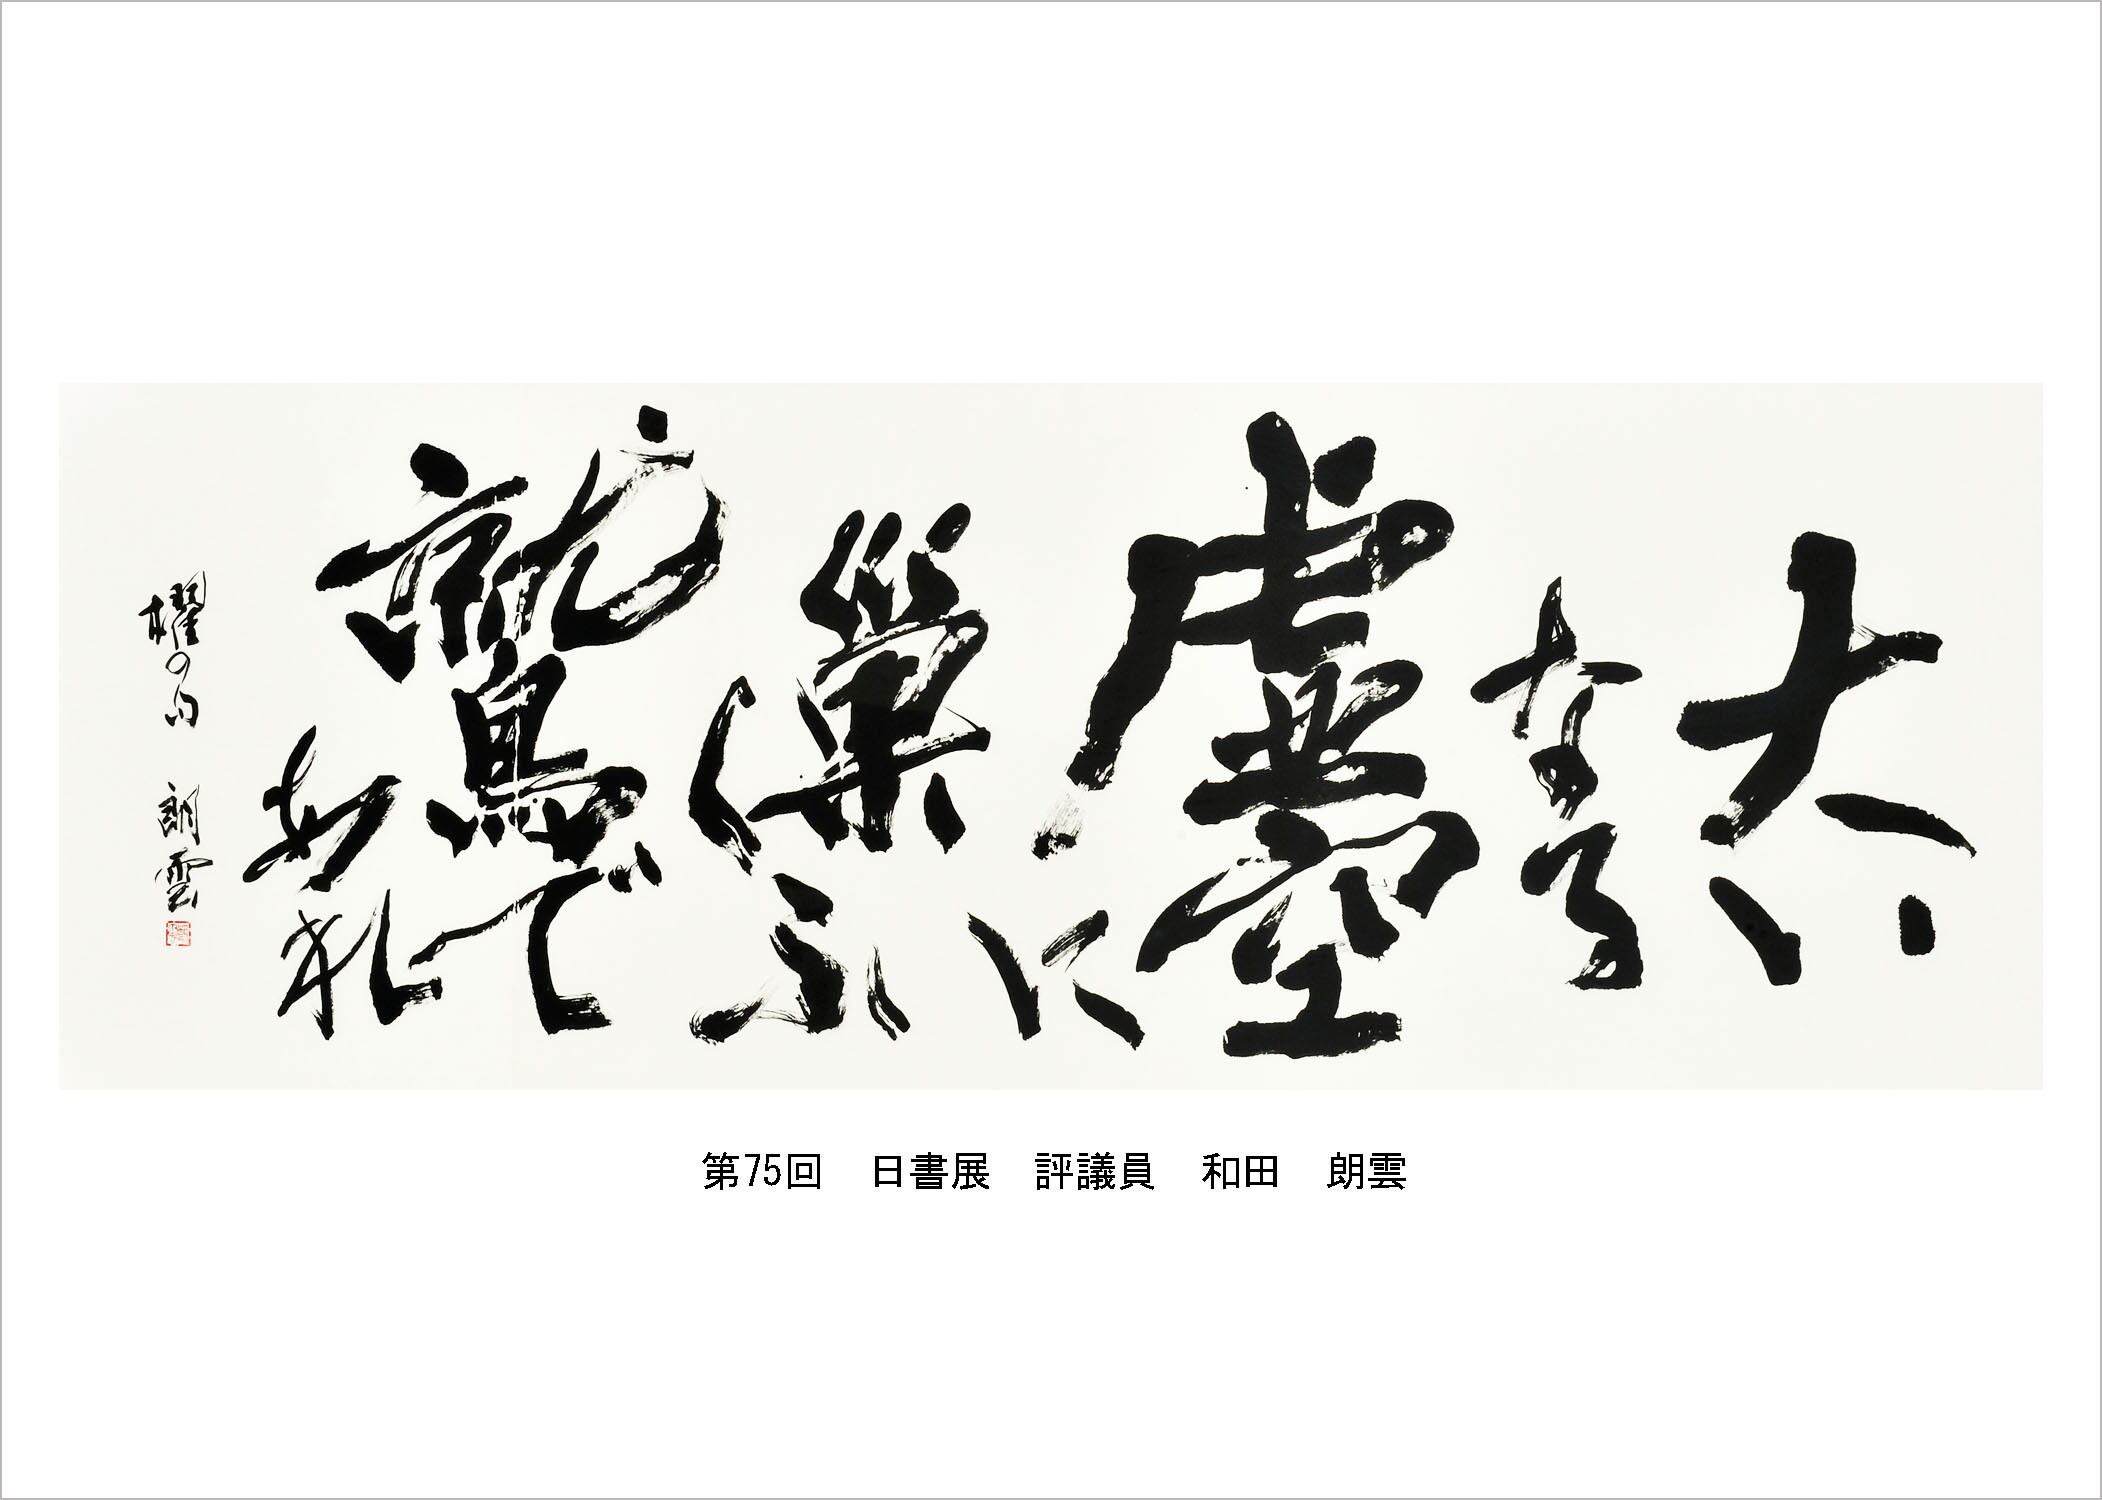 大い
なる
虚空
に
巣くふ
鷲で
あれ
櫂の句　朗雲
第75回　日書展　評議員　和田　朗雲